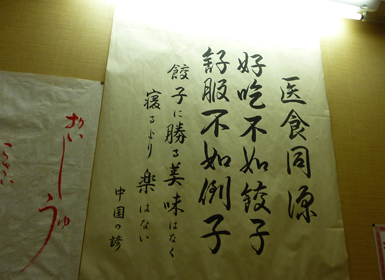 医食同源
好吃不如餃子
舒服不如倒子
餃子に勝る美味はなく
寝るより楽はない
中国の諺